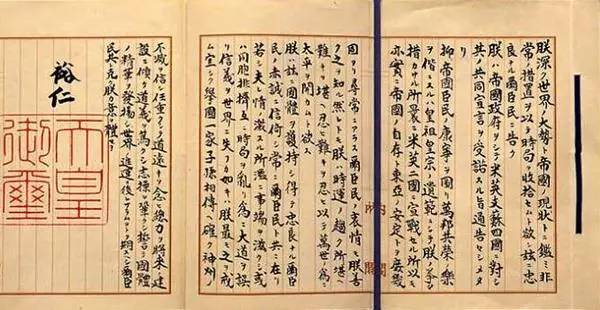 朕深ク世界ノ大勢ト帝國ノ現状トニ鑑ミ非
常ノ措置ヲ以テ時局ヲ収拾セムト欲シ茲ニ忠
良ナル爾臣民ニ告ク
朕ハ帝國政府ヲシテ米英支蘇四國ニ對シ
其ノ共同宣言ヲ受諾スル旨通告セシメタリ
抑〻帝國臣民ノ康寧ヲ圖リ萬邦共榮ノ樂
ヲ偕ニスルハ皇祖皇宗ノ遺範ニシテ朕ノ拳々
措カサル所曩ニ米英二國ニ宣戰セル所以モ
亦實ニ帝國ノ自存ト東亞ノ安定トヲ庶幾
内閣
固ヨリ尋常ニアラス爾臣民ノ衷情モ朕善
ク之ヲ知ル然レトモ朕ハ時運ノ趨ク所堪ヘ
難キヲ堪ヘ忍ヒ難キヲ忍ヒ以テ萬世ノ爲ニ
太平ヲ開カムト欲ス
朕ハ茲ニ國體ヲ護持シ得テ忠良ナル爾臣
民ノ赤誠ニ信倚シ常ニ爾臣民ト共ニ在リ
若シ夫レ情ノ激スル所濫ニ事端ヲ滋クシ或
ハ同胞排擠互ニ時局ヲ亂リ爲ニ大道ヲ誤
リ信義ヲ世界ニ失フカ如キハ朕最モ之ヲ戒
ム宜シク擧國一家子孫相傳ヘ確ク神州ノ
不滅ヲ信シ任重クシテ道遠キヲ念ヒ總力ヲ將來ノ建
設ニ傾ケ道義ヲ篤クシ志操ヲ鞏クシ誓テ國體
ノ精華ヲ發揚シ世界ノ進運ニ後レサラムコトヲ期スヘシ爾臣
民其レ克ク朕カ意ヲ體セヨ
裕仁
天皇
御璽